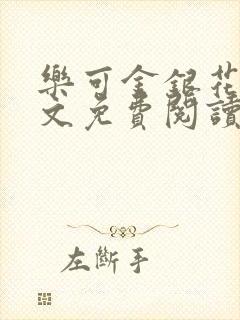 樂可金銀花
文免費閱讀
左斷手